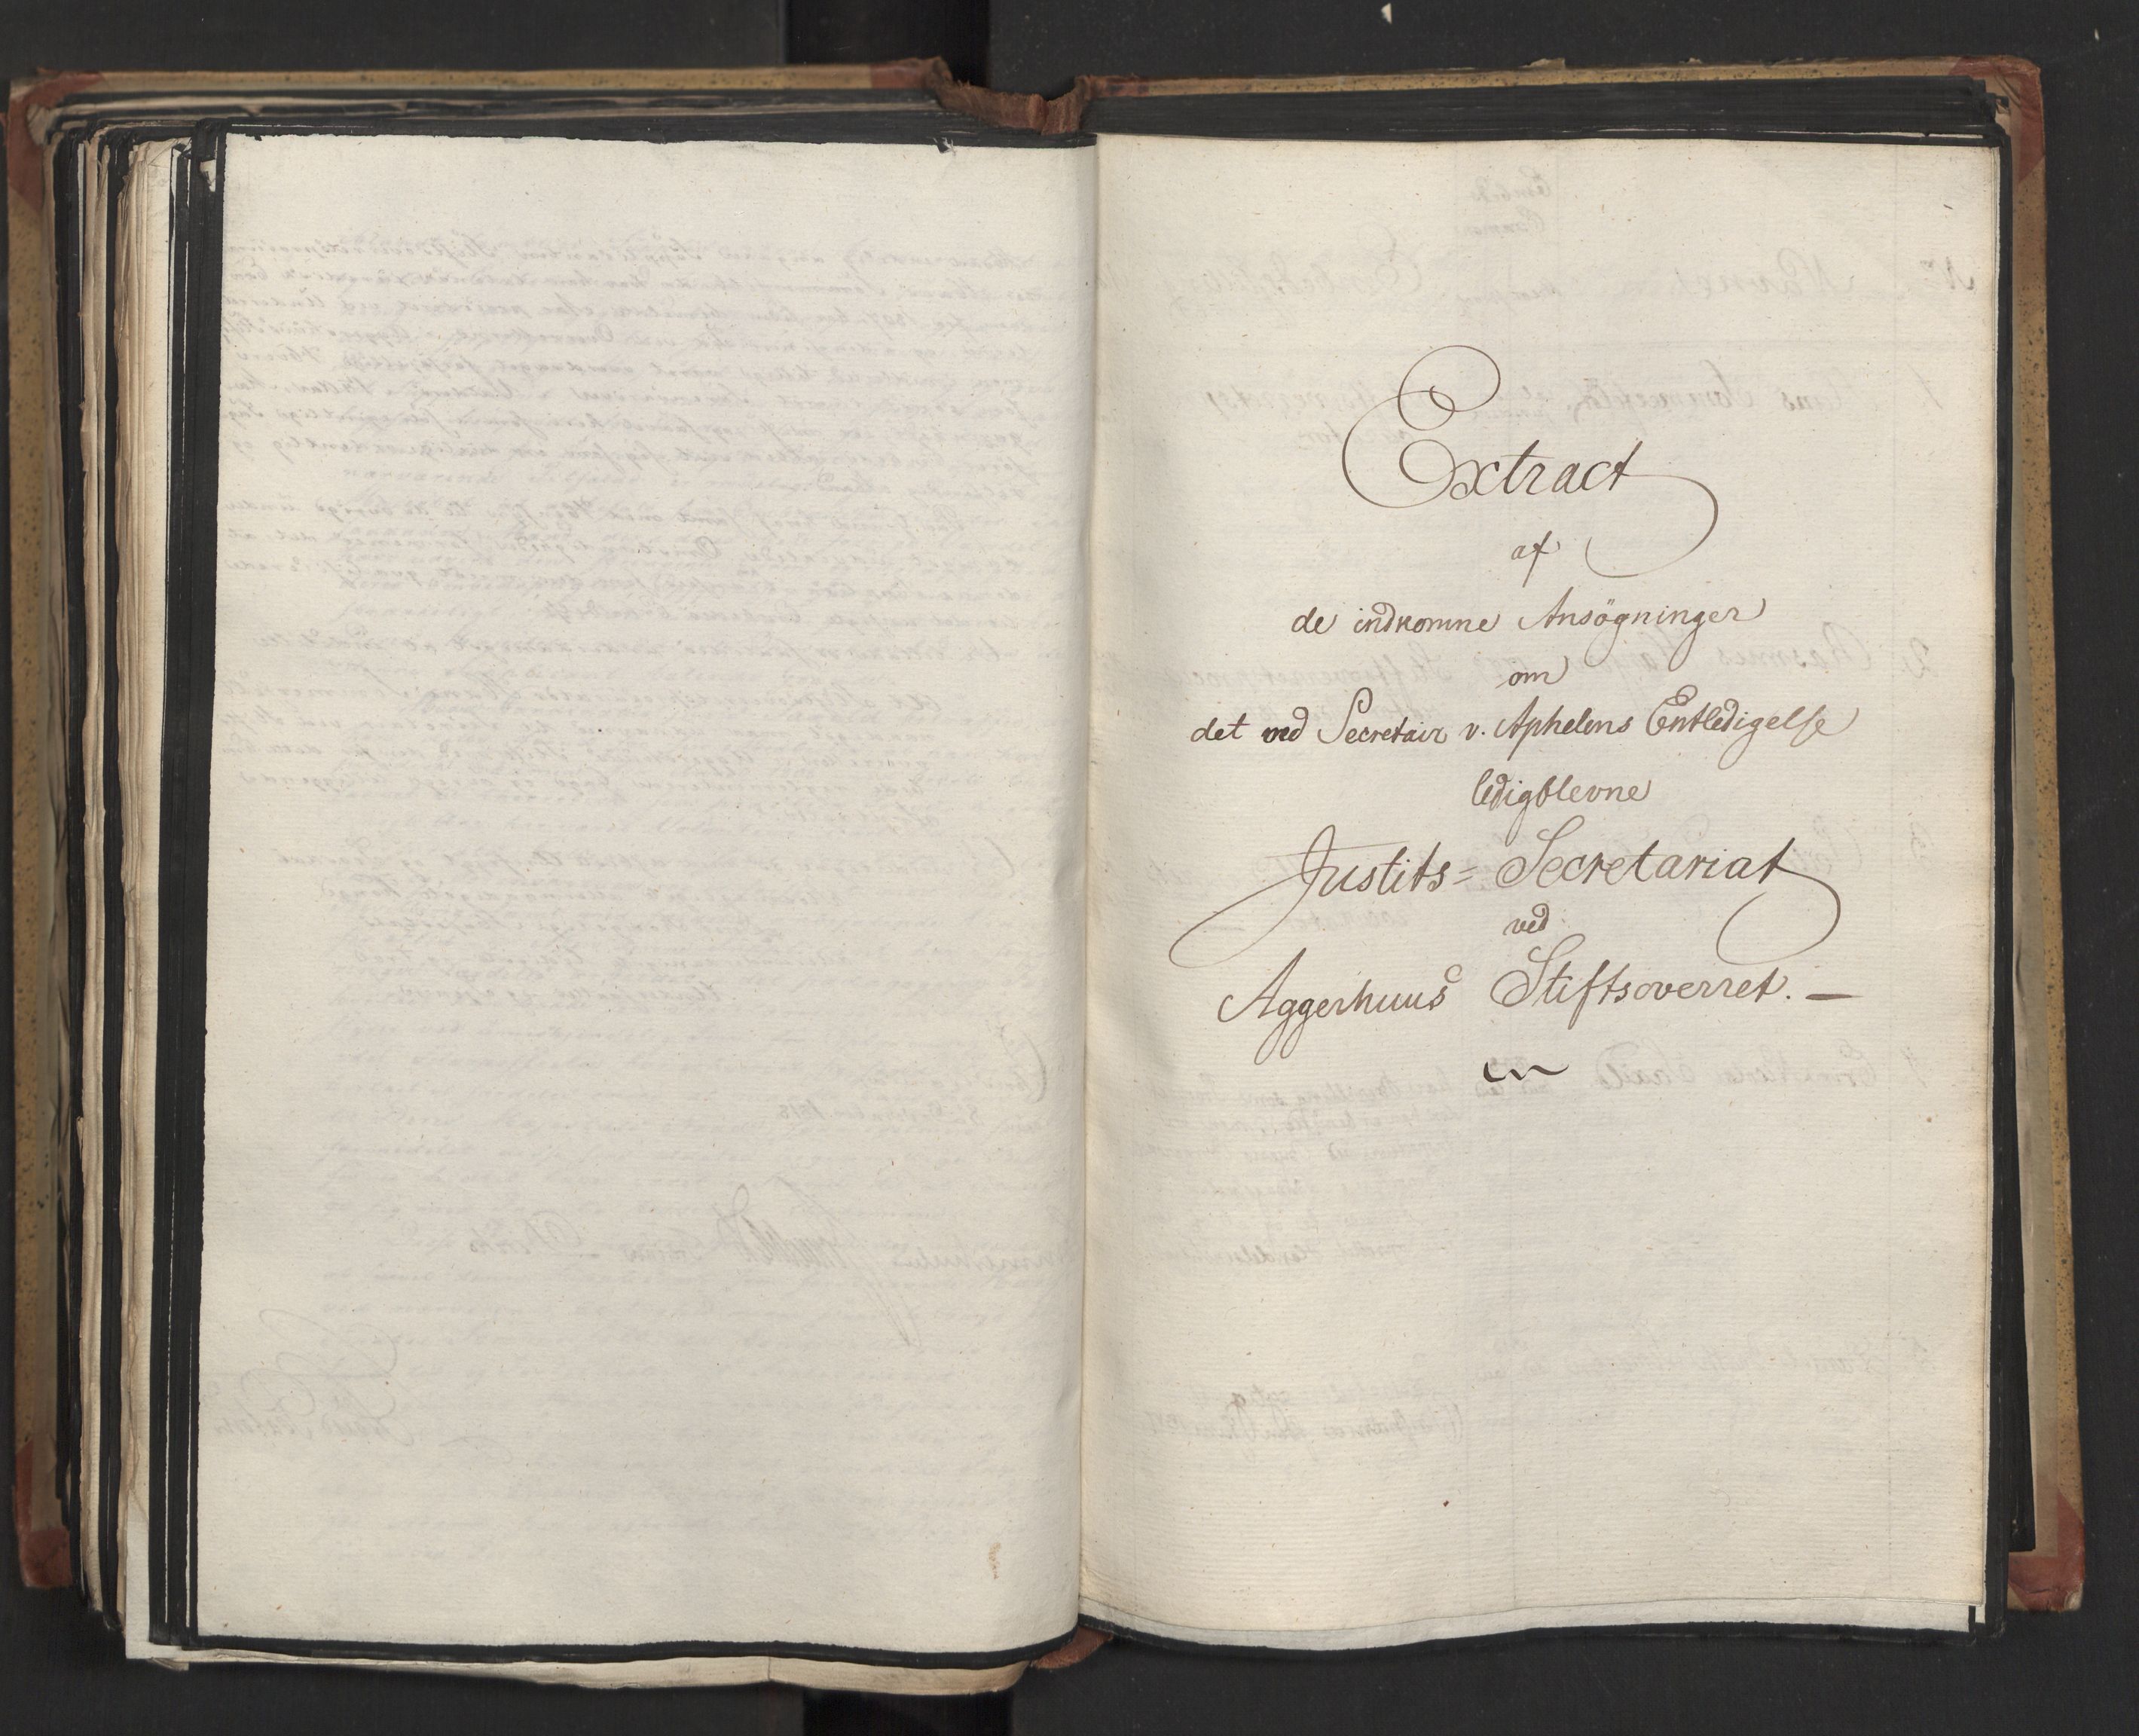 Extract
af
de indkomne Ansögninger
om
det ved Secretair v. Aphelens Entledigelse
ledigblevne
Justits= Secretariat
ved
Aggerhuus Stiftsoverret. —